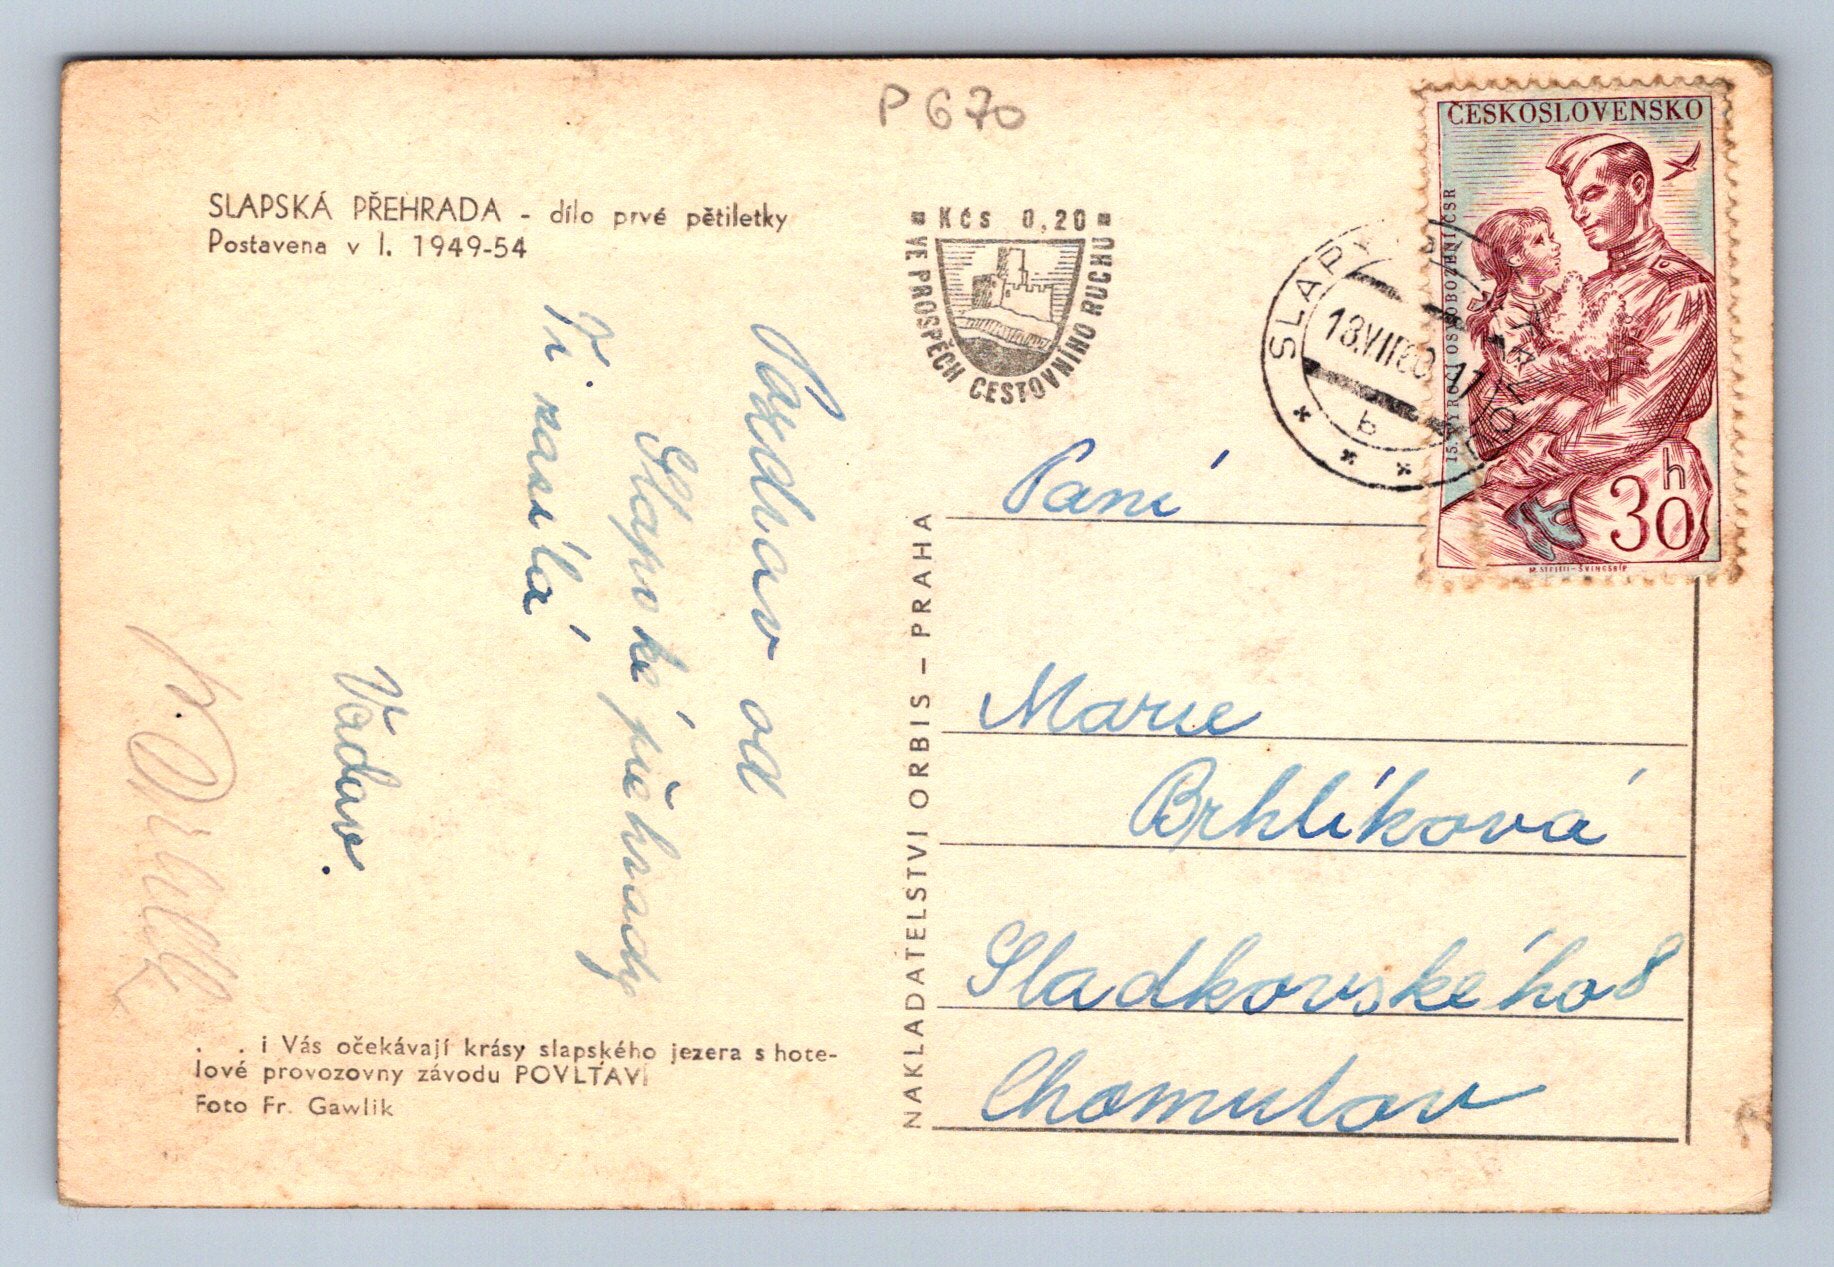 P 670
SLAPSKÁ PŘEHRADA - dílo prvé pětiletky
Postavena v l. 1949-54
Kčs 0,20
VE PROSPĚCH CESTOVNÍHO RUCHU
ČESKOSLOVENSKO
15. VÝROČÍ OSVOBOZENÍ ČSR
30 h
SLAPY
18.VII.60
b
Pozdrav od
Slapské přehrady
Ti zasílá
Václav.
NAKLADATELSTVÍ ORBIS – PRAHA
Paní
Marie
Brhlíková
Sladkovského 8
Chomutov
. . i Vás očekávají krásy slapského jezera s hote-
lové provozovny závodu POVLTAVÍ
Foto Fr. Gawlik